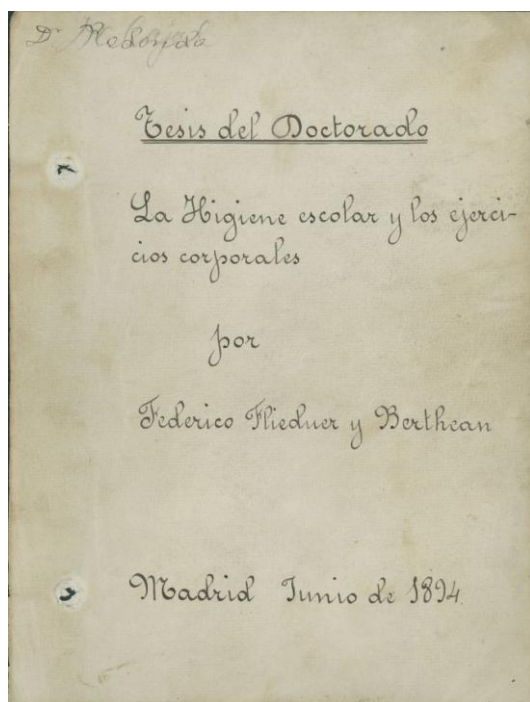 Dr
Tesis del Doctorado
La Higiene escolar y los ejerci-
cios corporales
por
Federico Fliedner y Bertheau
Madrid Junio de 1894